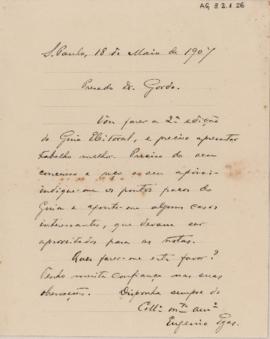 AG 8 2.1 26
S. Paulo, 18 de Maio de 1907
Prezado Dr. Gordo.
Vou fazer a 2ª edição
do Guia Eleitoral, e preciso apresentar
trabalho melhor. Preciso do seu
concurso e peço ao seu
indique-me os pontos fracos do
Guia e aponte-me alguns casos
interessantes, que devam ser
aproveitados para as notas.
Quer fazer-me este favor?
Tenho muita confiança nas suas
observações. Disponha sempre do
Collª mtº amº
Eugenio Egas.